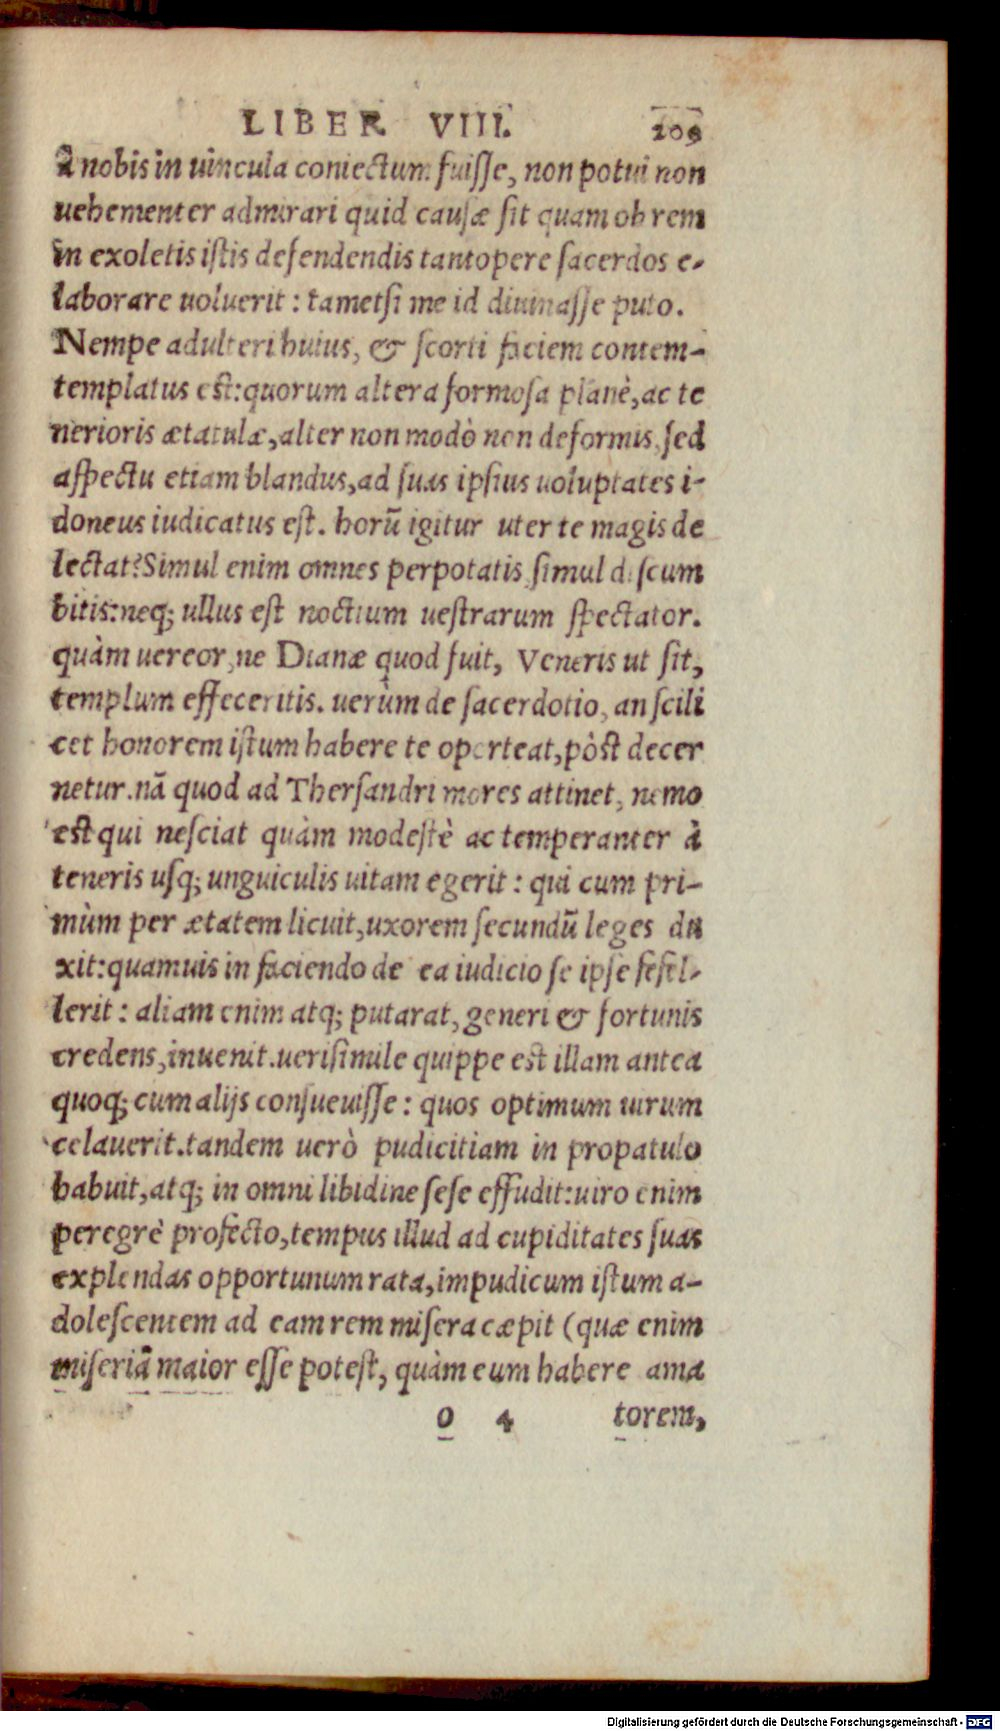 LIBER VIII. 209
à nobis in uincula coniectum fuiſſe, non potui non
uehementer admirari quid cauſæ ſit quam ob rem
in exoletis iſtis defendendis tantopere ſacerdos e-
laborare uoluerit: tametſi me id diuinaſſe puto.
Nempe adulteri huius, & ſcorti faciem contem-
templatus eſt: quorum altera formoſa planè, ac te
nerioris ætatulæ, alter non modò non deformis, ſed
aſpectu etiam blandus, ad ſuas ipſius uoluptates i-
doneus iudicatus eſt. horũ igitur uter te magis de
lectat? Simul enim omnes perpotatis ſimul diſcum
bitis: neq; ullus eſt noctium ueſtrarum ſpectator.
quàm uereor, ne Dianæ quod fuit, Veneris ut ſit,
templum effeceritis. uerùm de ſacerdotio, an ſcili
cet honorem iſtum habere te oporteat, pòſt decer
netur. nã quod ad Therſandri mores attinet, nemo
eſt qui neſciat quàm modeſtè ac temperanter à
teneris uſq; unguiculis uitam egerit: qui cum pri-
mùm per ætatem licuit, uxorem ſecundũ leges du
xit: quamuis in faciendo de ea iudicio ſe ipſe fefel-
lerit: aliam enim atq; putarat, generi & fortunis
credens, inuenit. ueriſimile quippe eſt illam antea
quoq; cum alijs conſueuiſſe: quos optimum uirum
celauerit. tandem uerò pudicitiam in propatulo
habuit, atq; in omni libidine ſeſe effudit: uiro enim
peregrè profecto, tempus illud ad cupiditates ſuas
explendas opportunum rata, impudicum iſtum a-
doleſcentem ad eam rem miſera cæpit (quæ enim
miſeriã maior eſſe poteſt, quàm eum habere ama
o 4 torem,
Digitalisierung gefördert durch die Deutsche Forschungsgemeinschaft - DFG